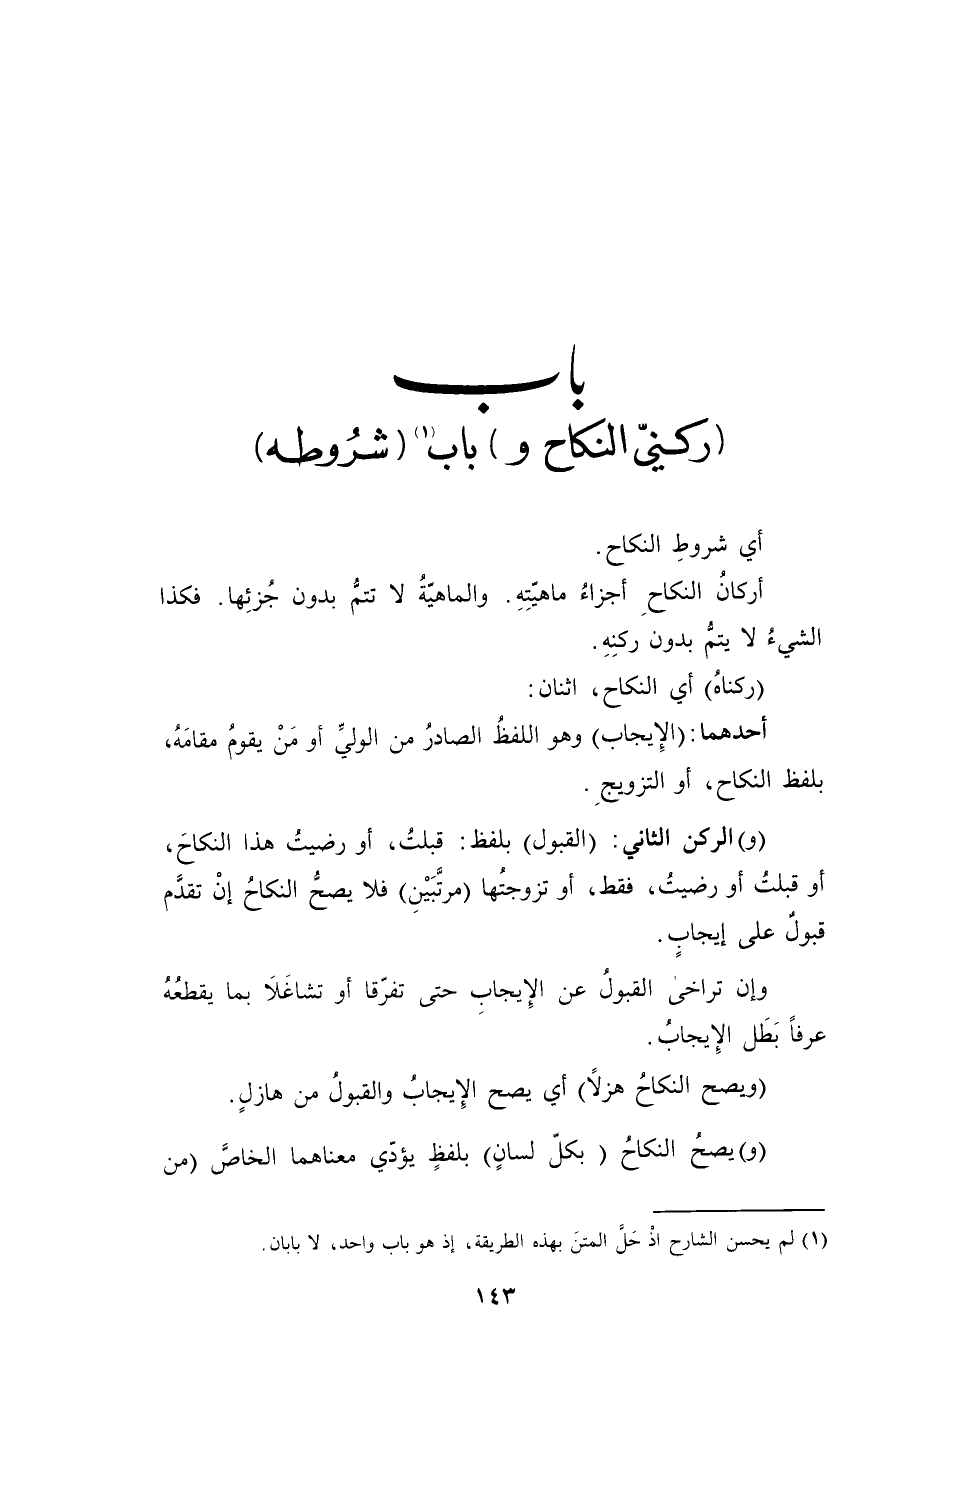 باب
(ركنيّ النكاح و) باب(١) (شرُوطه)
أي شروطِ النكاح.
أركانُ النكاحِ أجزاءُ ماهيّتِهِ. والماهيّةُ لا تتمُّ بدون جُزئِها. فكذا
الشيءُ لا يتمُّ بدون ركنِهِ.
(ركناهُ) أي النكاح، اثنان:
أحدهما: (الإِيجاب) وهو اللفظُ الصادرُ من الوليِّ أو مَنْ يقومُ مقامَهُ،
بلفظ النكاح، أو التزويجِ.
(و) الركن الثاني: (القبول) بلفظ: قبلتُ، أو رضيتُ هذا النكاحَ،
أو قبلتُ أو رضيتُ، فقط، أو تزوجتُها (مرتَّبَيْنِ) فلا يصحُّ النكاحُ إنْ تقدَّم
قبولٌ على إيجابٍ.
وإن تراخىٰ القبولُ عن الإِيجابِ حتى تفرّقا أو تشاغَلَا بما يقطعُهُ
عرفاً بَطَل الإِيجابُ.
(ويصح النكاحُ هزلًا) أي يصح الإِيجابُ والقبولُ من هازلٍ.
(و) يصحُ النكاحُ ( بكلّ لسانٍ) بلفظٍ يؤدّي معناهما الخاصَّ (من
(١) لم يحسن الشارح اذْ حَلَّ المتنَ بهذه الطريقة، إذ هو باب واحد، لا بابان.
١٤٣